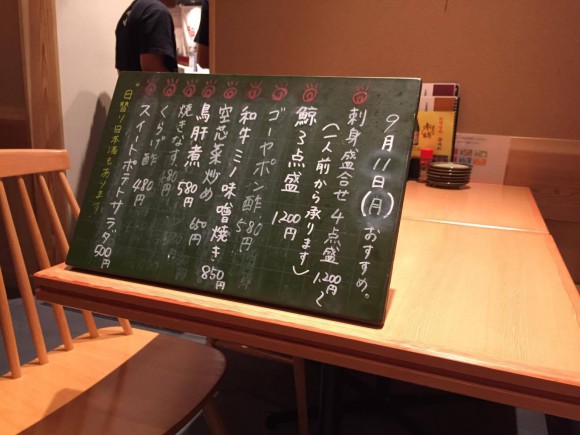 9月11日(月)おすすめ。
刺身盛合せ 4点盛 1,200円〜
(一人前から承ります)
鯨3点盛 1,200円
ゴーヤポン酢 580円
和牛ミノ味噌焼き 850円
空芯菜炒め 650円
鳥肝煮 580円
焼きなす 480円
くらげ酢 480円
スイートポテトサラダ 500円
日替り日本酒もあります